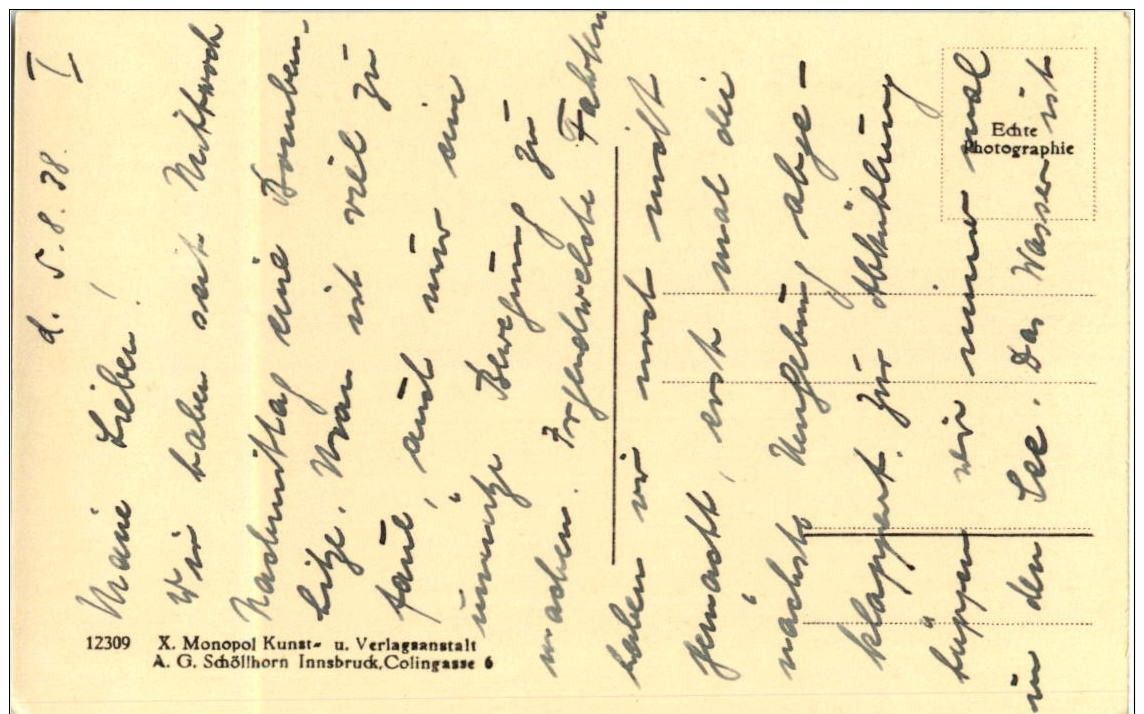 I
d. 5.8.38.
Meine Lieben!
Wir haben seit Mittwoch
Nachmittag eine Bomben-
hitze. Man ist viel zu
faul, auch nur eine
unnütze Bewegung zu
machen. Irgendwelche Fahrten
haben wir noch nicht
gemacht, erst mal die
nächste Umgebung abge-
klappert. Zur Abkühlung
hüppen wir immer mal
in den See. Das Wasser ist
Echte
Photographie
12309 X. Monopol Kunst- u. Verlagsanstalt
A. G. Schöllhorn Innsbruck, Colingasse 6